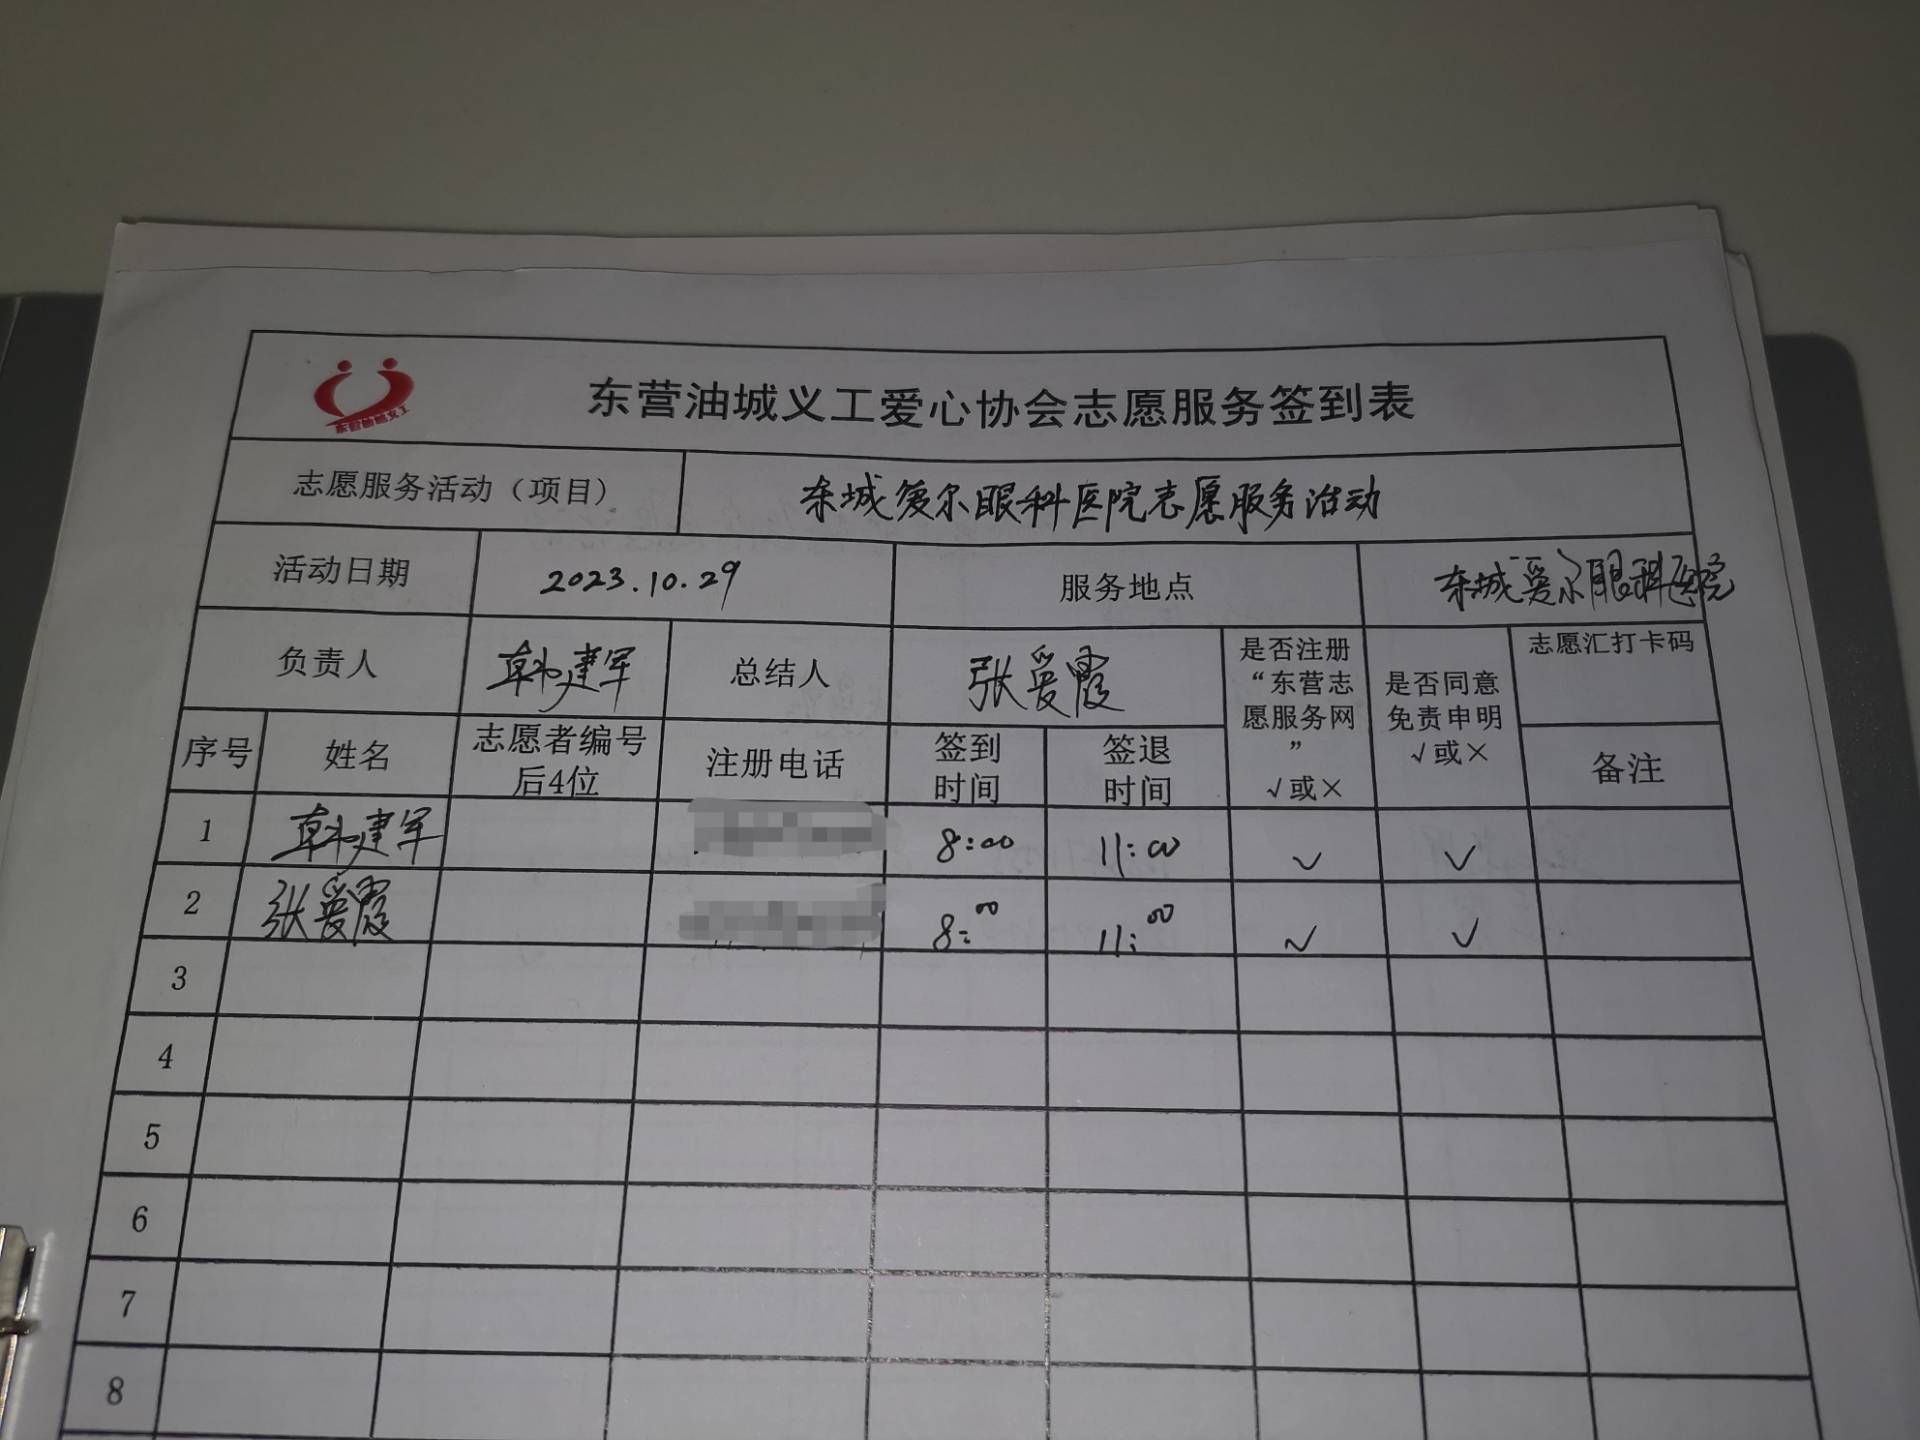 东营油城义工
东营油城义工爱心协会志愿服务签到表
志愿服务活动（项目） 东城爱尔眼科医院志愿服务活动
活动日期 2023.10.29 服务地点 东城爱尔眼科医院
负责人 韩建军 总结人 张爱霞
是否注册
“东营志
愿服务网
”
√或×
是否同意
免责申明
√或×
志愿汇打卡码
序号 姓名
志愿者编号
后4位
注册电话
签到
时间
签退
时间
备注
1 韩建军 8:00 11:00 ✓ ✓
2 张爱霞 8:00 11:00 ✓ ✓
3
4
5
6
7
8